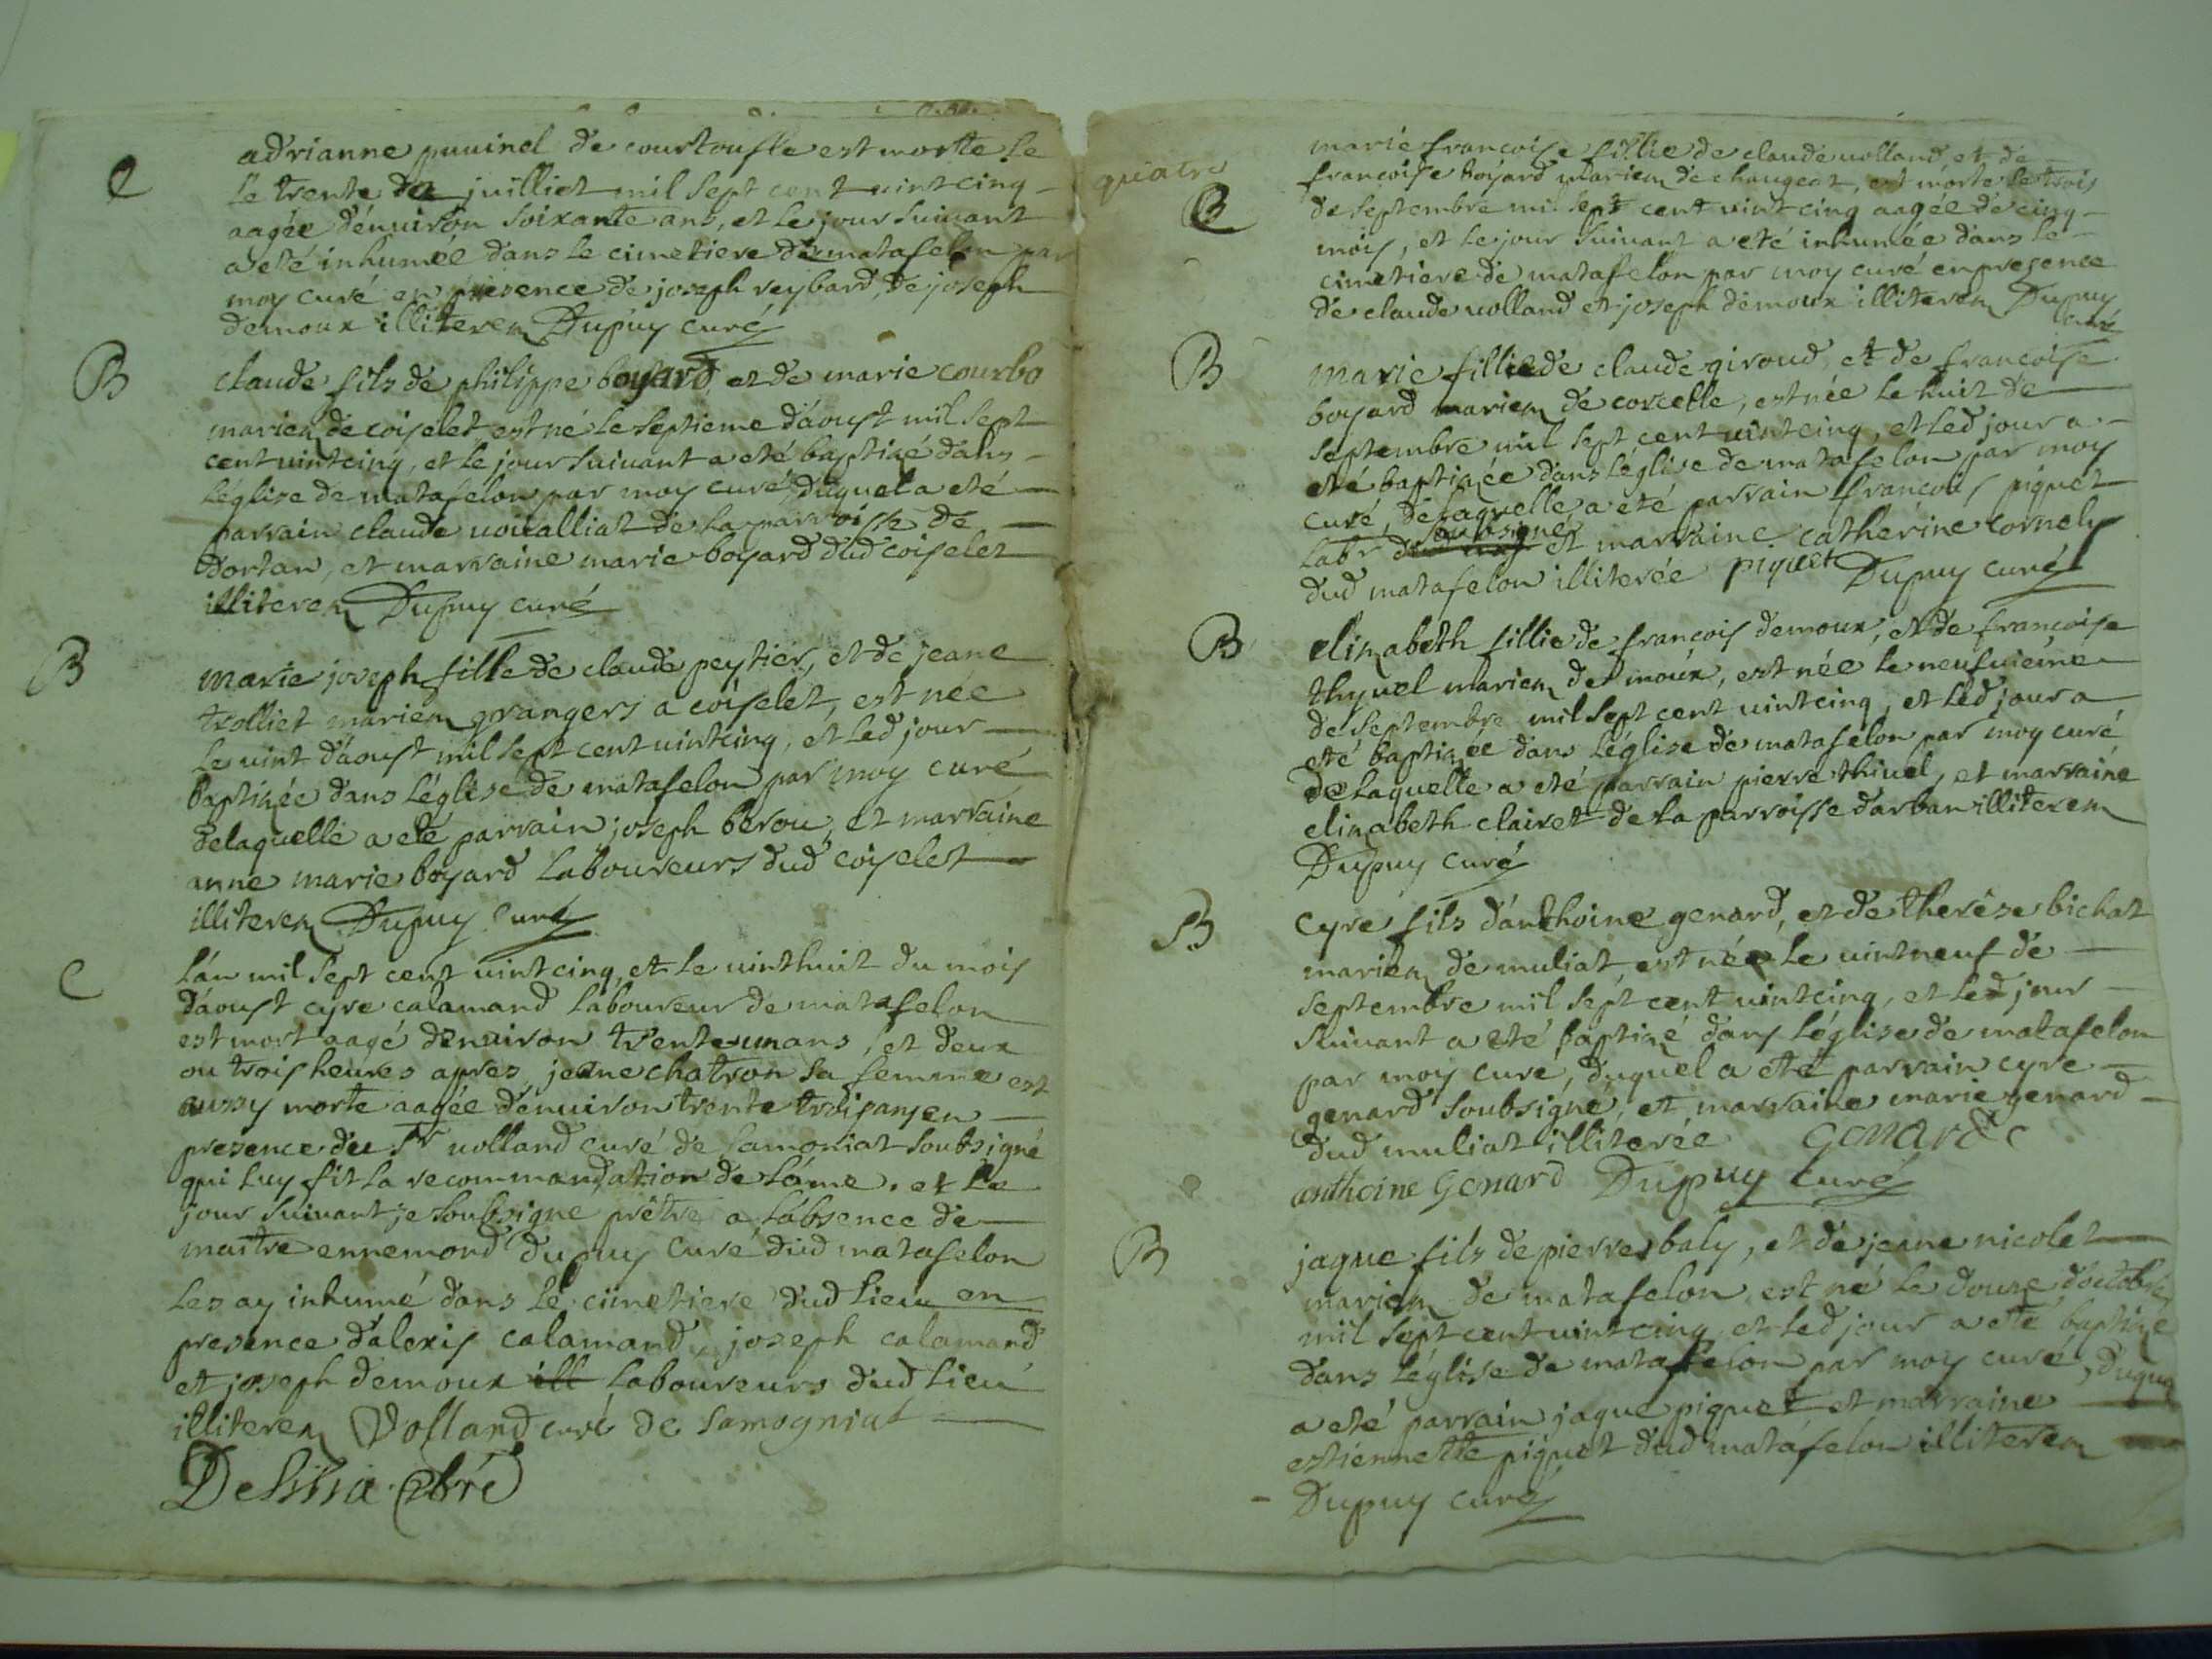 adrianne puuinel de courtoufle est morte le
C
le trente de juilliet mil sept cent vint cinq
aagée d'énuiron soixante ans, et le jour suiuant
a eté inhumée dans le cimetiere de matafelon par
moy curé en presence de joseph reybard, de joseph
demoux illiterez Dupuy curé
B
claude fils de philippe boyard, et de marie courbo
mariez de coiselet est né le septieme d'áoust mil sept
cent uint cinq, et le jour suiuant a eté baptizé dans
l'église de matafelon par moy curé, duquel a eté
parrain claude uouialliat de la parroisse de
dortan, et marraine marie boyard dud coiselet
illiterez Dupuy curé
B
marie joseph fille de claude peytier, et de jeane
trolliet mariez grangers a coiselet, est née
le uint d'áoust mil sept cent uint cinq, et led jour
baptizée dans l'église de matafelon par moy curé
delaquelle a eté parrain joseph berou, et marraine
anne marie boyard laboureurs dud coiselet
illiterez Dupuy Curé
C
l'án mil sept cent uint cinq, et le uinthuit du mois
d'áoust cyre calamand laboureur de matafelon
est mort aagé d'enuiron trente un ans, et deux
ou trois heures apres jeane chatron sa femme est
aussy morte aagée d'enuiron trente trois ans en
presence du Sr uolland curé de samoniat soubsigné
qui luy fit la recommandation de l'áme. et le
jour suiuant je soubsigne prêtre a l'ábsence de
maître ennemond Dupuy curé dud matafelon
les ay inhumé dans le cimetiere dud lieu en
presence d'alexis calamand, joseph calamand
et joseph demoux ill laboureurs dud lieu
illiterez Volland curé de Samogniat
quatre
marie francoise fillie de claude uolland, et de
francoise boyard mariez de chaugeat, est morte le trois
C
de septembre mil sept cent uint cinq aagée de cinq
mois, et le jour suiuant a eté inhumée dans le
cimetiere de matafelon par moy curé en presence
de claude uolland et joseph demoux illiterez Dupuy
curé
B
marie fillie de claude giroud, et de francoise
boyard mariez de corcelle, est née le huit de
septembre mil sept cent uint cinq, et led jour a
eté baptizée dans l'église de matafelon par moy
curé, de laquelle a eté parrain francois piquet
soubsigné
labr dud mat et marraine catherine cornely
dud matafelon illiterée piquet Dupuy curé
B
elizabeth fillie de francois demoux, et de francoise
thyuel mariez de moux, est née le neufuieme
de septembre mil sept cent uint cinq, et led jour a
eté baptizée dans l'église de matafelon par moy curé
de laquelle a eté parrain pierre thiuel, et marraine
elizabeth clairet de la parroisse d'arban illiterez
Dupuy curé
B
cyre fils d'ánthoine genard, et de therése bichat
mariez de muliat, est née le uintneuf de
septembre mil sept cent uint cinq, et led jour
suiuant a eté baptizé dans l'église de matafelon
par moy curé, duquel a eté parrain cyre
genard soubsigné, et marraine marie genard
dud muliat illiterée Genard C
anthoine Genard Dupuy curé
B
jaque fils de pierre baly, et de jeane nicolet
mariez de matafelon est né le douze d'octobre
mil sept cent uint cinq, et led jour a eté baptizé
dans l'église de matafelon par moy curé, duquel
a eté parrain jaque piquet et marraine
estiennette piquet dud matafelon illiterez
Dupuy curé